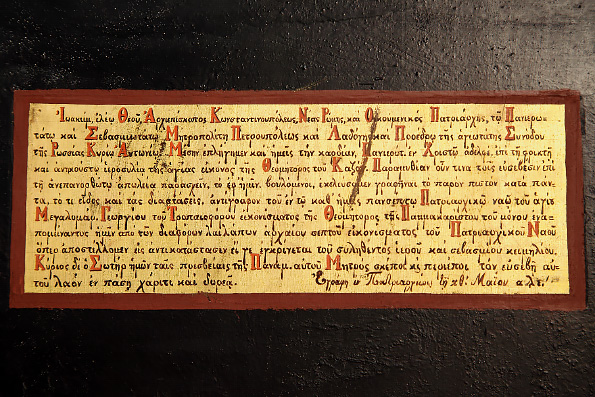 Ἰωακεὶμ, ἐλέῳ Θεοῦ, Ἀρχιεπίσκοπος Κωνσταντινουπόλεως, Νέας Ρώμης, καὶ Οἰκουμενικὸς Πατριάρχης, τῷ Πανιερω-
τάτῳ καὶ Σεβασμιωτάτῳ Μητροπολίτῃ Πετρουπόλεως καὶ Λαδόγης καὶ Προέδρῳ τῆς ἁγιωτάτης Συνόδου
τῆς Ρωσσίας Κυρίῳ Ἀντωνίῳ καὶ ἡμεῖς τὴν καρδίαν, ἐν Χριστῷ ἀδελφὲ, ἐπὶ τῇ φρικτῇ
καὶ ἀνηκούστῳ ἱεροσυλίᾳ τῆς ἁγίας εἰκόνος τῆς Θεομήτορος τοῦ Καζάν. Παραμυθίαν οὖν τινα τοῖς εὐσεβέσιν ἐπὶ
τῇ ἀνεπανορθώτῳ ἀπωλείᾳ παρασχεῖν, τὸ ἐφ' ἡμῖν, βουλόμενοι, ἐκελεύσαμεν γραφῆναι τὸ παρὸν πιστὸν κατὰ πάν-
τα, τό τε εἶδος καὶ τὰς διαστάσεις, ἀντίγραφον τοῦ ἐν τῷ καθ' ἡμᾶς πανσέπτῳ Πατριαρχικῷ ναῷ τοῦ ἁγίου
Μεγαλομάρτ. Γεωργίου τοῦ Τροπαιοφόρου εἰκονίσματος τῆς Θεομήτορος τῆς Παμμακαρίστου τοῦ μόνου ἐνα-
πομείναντος ἡμῖν ἀπὸ τῶν διαφόρων λαιλάπων ἀρχαίου σεπτοῦ εἰκονίσματος τοῦ Πατριαρχικοῦ Ναοῦ
ὅπερ ἀποστέλλομεν εἰς ἀντικατάστασιν εἴ γε ἐγκρίνεται τοῦ συληθέντος ἱεροῦ καὶ σεβασμίου κειμηλίου.
Κύριος δὲ ὁ Σωτὴρ ἡμῶν ταῖς πρεσβείαις τῆς Παναμ. αὐτοῦ Μητρὸς σκέποι καὶ περιέποι τὸν εὐσεβῆ αὐ-
τοῦ λαὸν ἐν πάσῃ χάριτι καὶ δωρεᾷ. Ἐγράφη ἐν Πατριαρχείοις τῇ κθ' Μαΐου